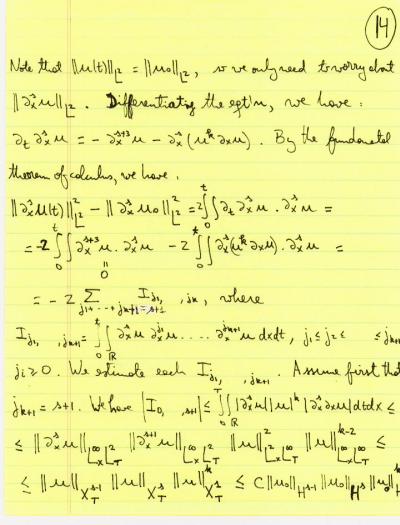 14
Note that ‖u(t)‖_{L²} = ‖u₀‖_{L²}, so we only need to worry about
‖∂ₓˢu‖_{L²}. Differentiating the eqt'n, we have:
∂ₜ∂ₓˢu = -∂ₓ^{s+3}u - ∂ₓˢ(uᵏ∂ₓu). By the fundamental
theorem of calculus, we have:
‖∂ₓˢu(t)‖²_{L²} - ‖∂ₓˢu₀‖²_{L²} = 2∫₀ᵗ∫ ∂ₜ∂ₓˢu · ∂ₓˢu =
= -2 ∫₀ᵗ∫ ∂ₓ^{s+3}u · ∂ₓˢu - 2 ∫₀ᵗ∫ ∂ₓˢ(uᵏ∂ₓu) · ∂ₓˢu =
‖
0
= -2 Σ_{j₁+...+j_{k+1}=s+1} I_{j₁, ,jₖ}, where
I_{j₁, ,j_{k+1}} = ∫₀ᵗ∫_ℝ ∂ₓˢu ∂ₓ^{j₁}u. ... ∂ₓ^{j_{k+1}}u dxdt, j₁≤j₂≤ ≤j_{k+1}
jᵢ≥0. We estimate each I_{j₁, ,j_{k+1}}. Assume first that
j_{k+1} = s+1. We have |I_{0, ,s+1}| ≤ ∫₀ᵀ∫_ℝ |∂ₓˢu||u|ᵏ|∂ₓˢ∂ₓu|dtdx ≤
≤ ‖∂ₓˢu‖_{L^∞ₓL²_T} ‖∂ₓ^{s+1}u‖_{L^∞ₓL²_T} ‖u‖²_{L²ₓL^∞_T} ‖u‖^{k-2}_{L^∞ₓL^∞_T} ≤
≤ ‖u‖_{X_T^{s-1}} ‖u‖_{X_T^s} ‖u‖ᵏ_{X_T^1} ≤ C‖u₀‖_{H^{s-1}} ‖u₀‖_{H^s} ‖u₀‖ᵏ_H